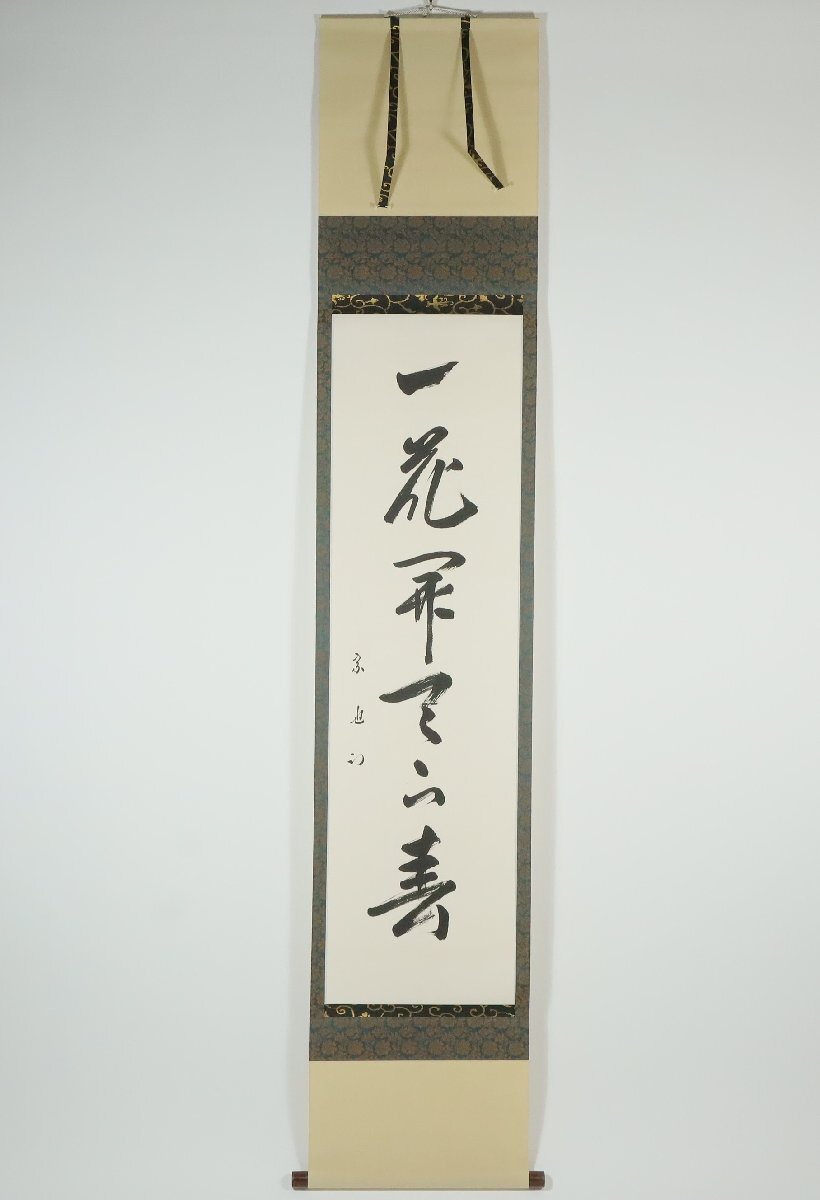 一花開天下春
宗